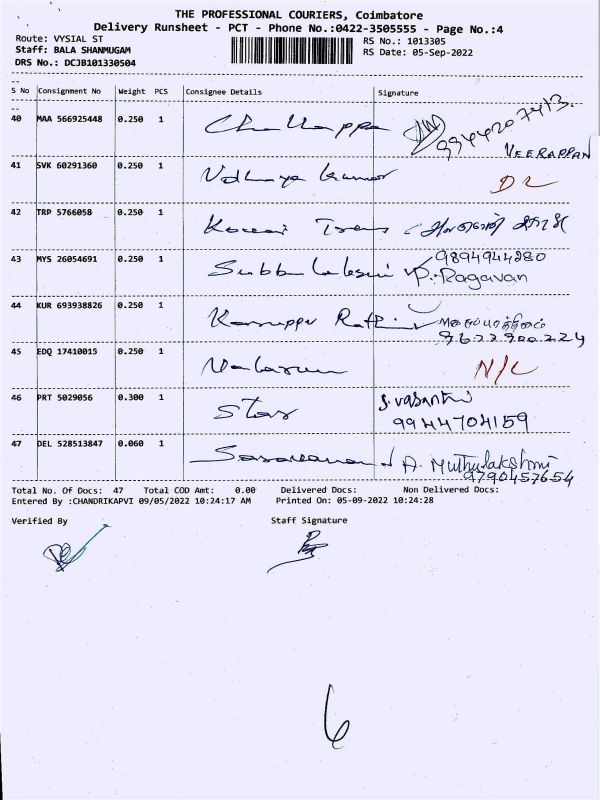 THE PROFESSIONAL COURIERS, Coimbatore
Delivery Runsheet - PCT - Phone No.:0422-3505555 - Page No.:4
Route: VYSIAL ST
RS No.: 1013305
Staff: BALA SHANMUGAM
RS Date: 05-Sep-2022
DRS No.: DCJB101330504
S No Consignment No Weight PCS Consignee Details Signature
40 MAA 566925448 0.250 1 Chellappa 9944207413
VEERAPPAN
41 SVK 60291360 0.250 1 Vdhaya kumar DL
42 TRP 5766058 0.250 1 Kovai Trans
43 MYS 26054691 0.250 1 9894944280
P. Ragavan
44 KUR 693938826 0.250 1 Karuppu Rathi
9622900224
45 EDQ 17410015 0.250 1 N/C
46 PRT 5029056 0.300 1 Star S. Vasanthi
9944704159
47 DEL 528513847 0.060 1 Saravanan A. Muthulakshmi
9790457654
Total No. Of Docs: 47 Total COD Amt: 0.00 Delivered Docs: Non Delivered Docs:
Entered By :CHANDRIKAPVI 09/05/2022 10:24:17 AM Printed On: 05-09-2022 10:24:28
Verified By Staff Signature
6